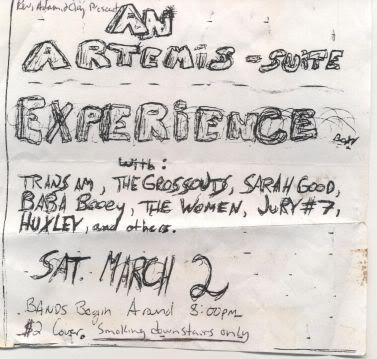 Rev. Adam & Clay Present
AN
ARTEMIS-SUITE
EXPERIENCE
with:
TRANS AM, THE GROSSOUTS, SARAH GOOD,
BABA Booey, THE WOMEN, JURY #7,
HUXLEY, and others.
SAT. MARCH 2
BANDS Begin Around 8:00PM
$2 Cover. Smoking downstairs only